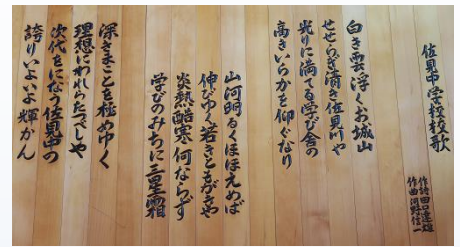 佐見中学校校歌
作詩 田口建雄
作曲 河野信一
白き雲浮くお城山
せせらぎ清き佐見川や
光りに満てる学び舎の
高きいらかを仰ぐなり
山河明るくほほえめば
伸びゆく若きともがきや
炎熱酷寒何ならず
学びのみちに三星霜
深きまことを極めゆく
理想にわれらたつべしや
次代をになう佐見中の
誇りいよいよ輝かん